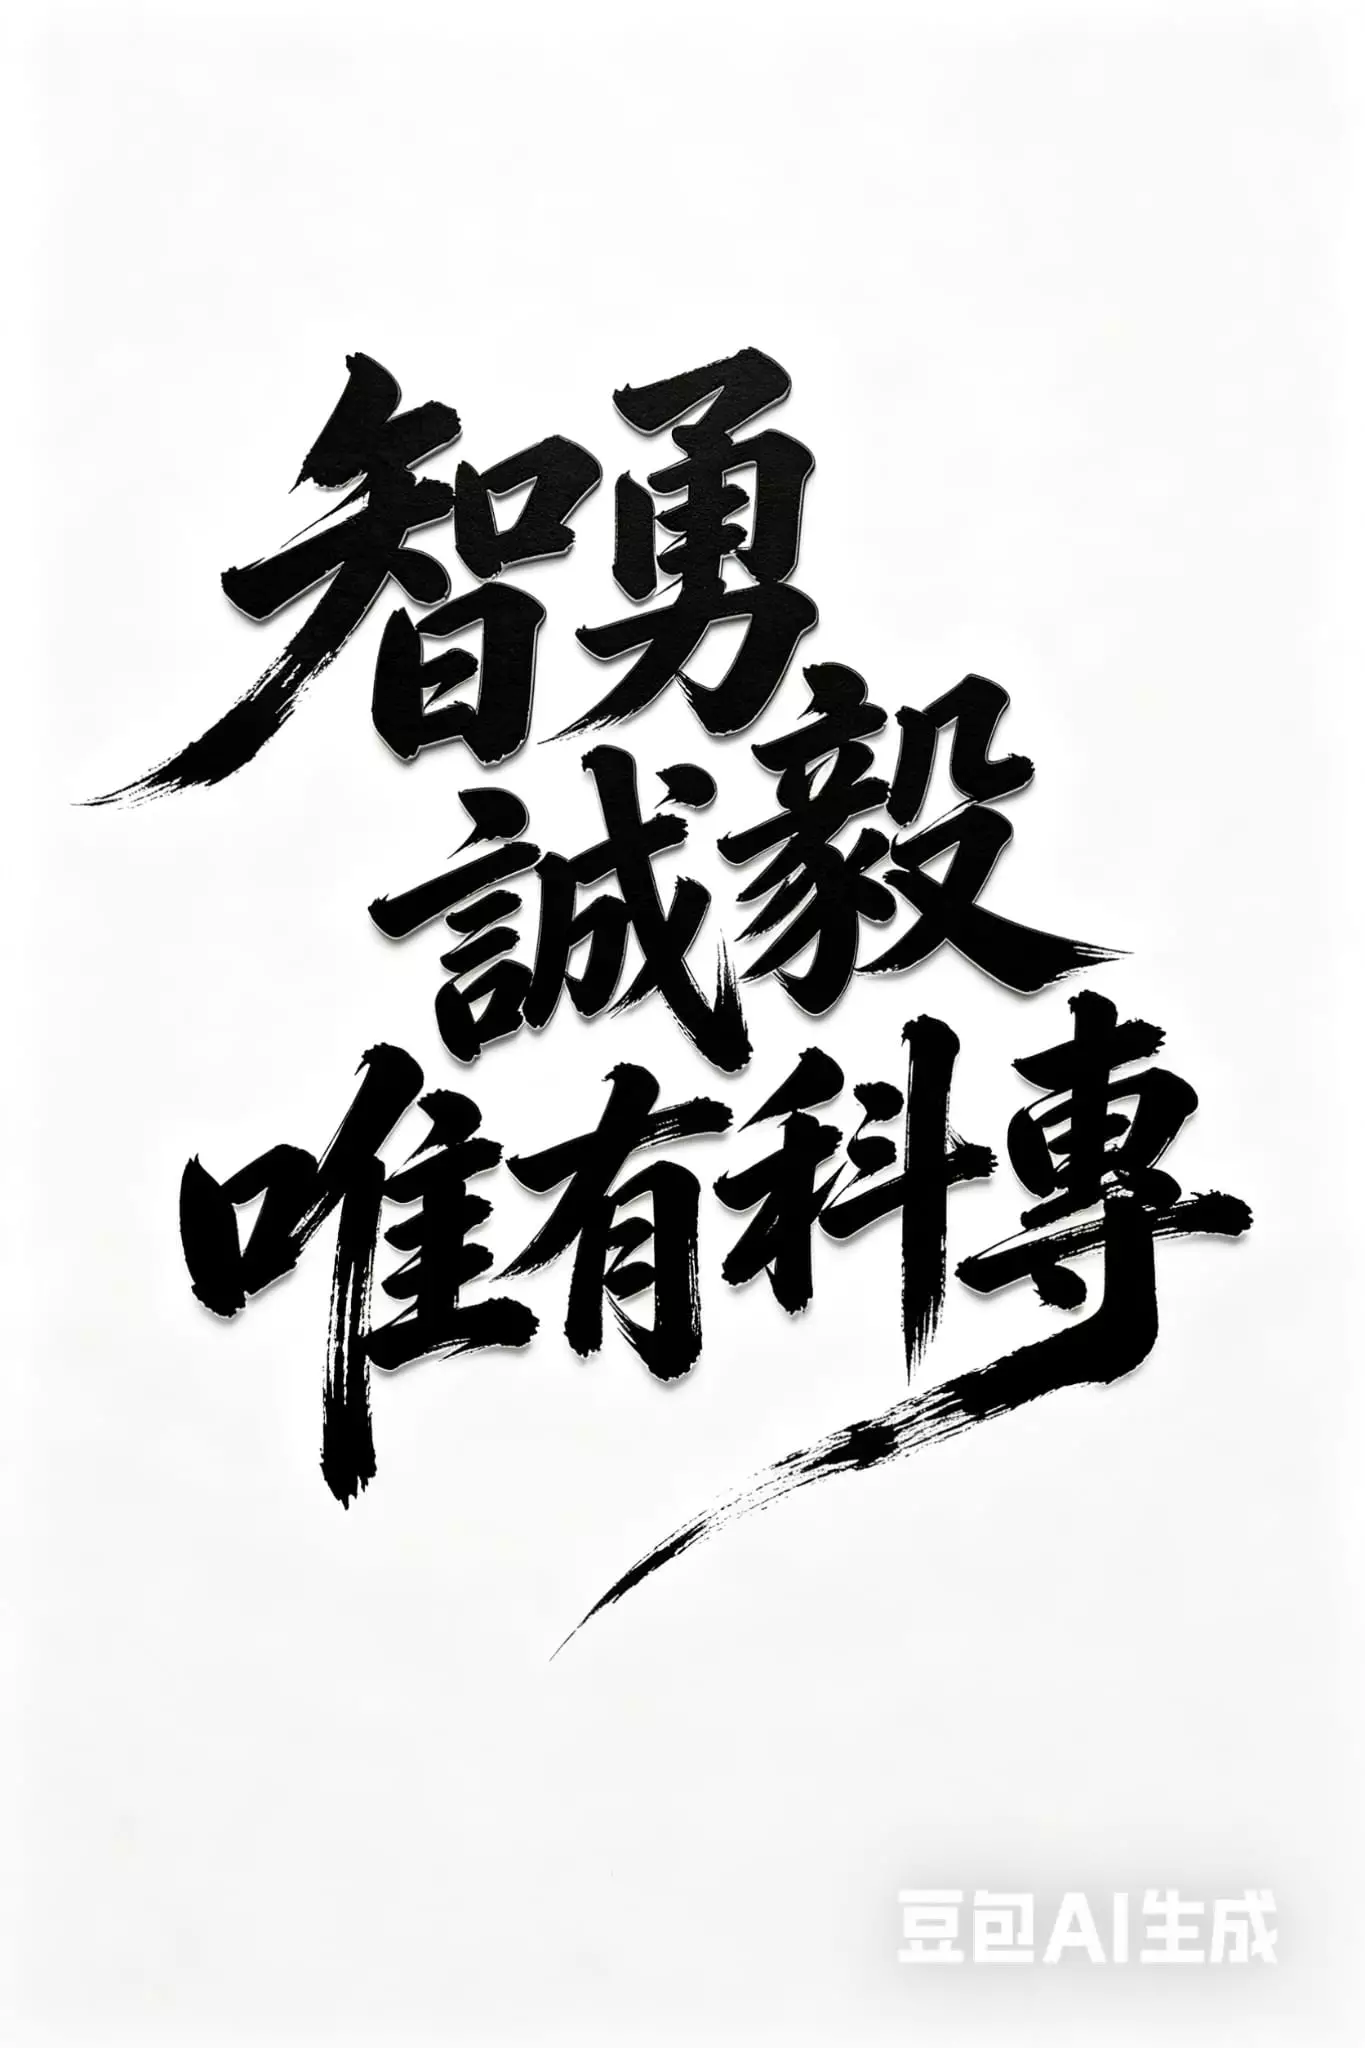 智勇
誠毅
唯有科專
豆包AI生成